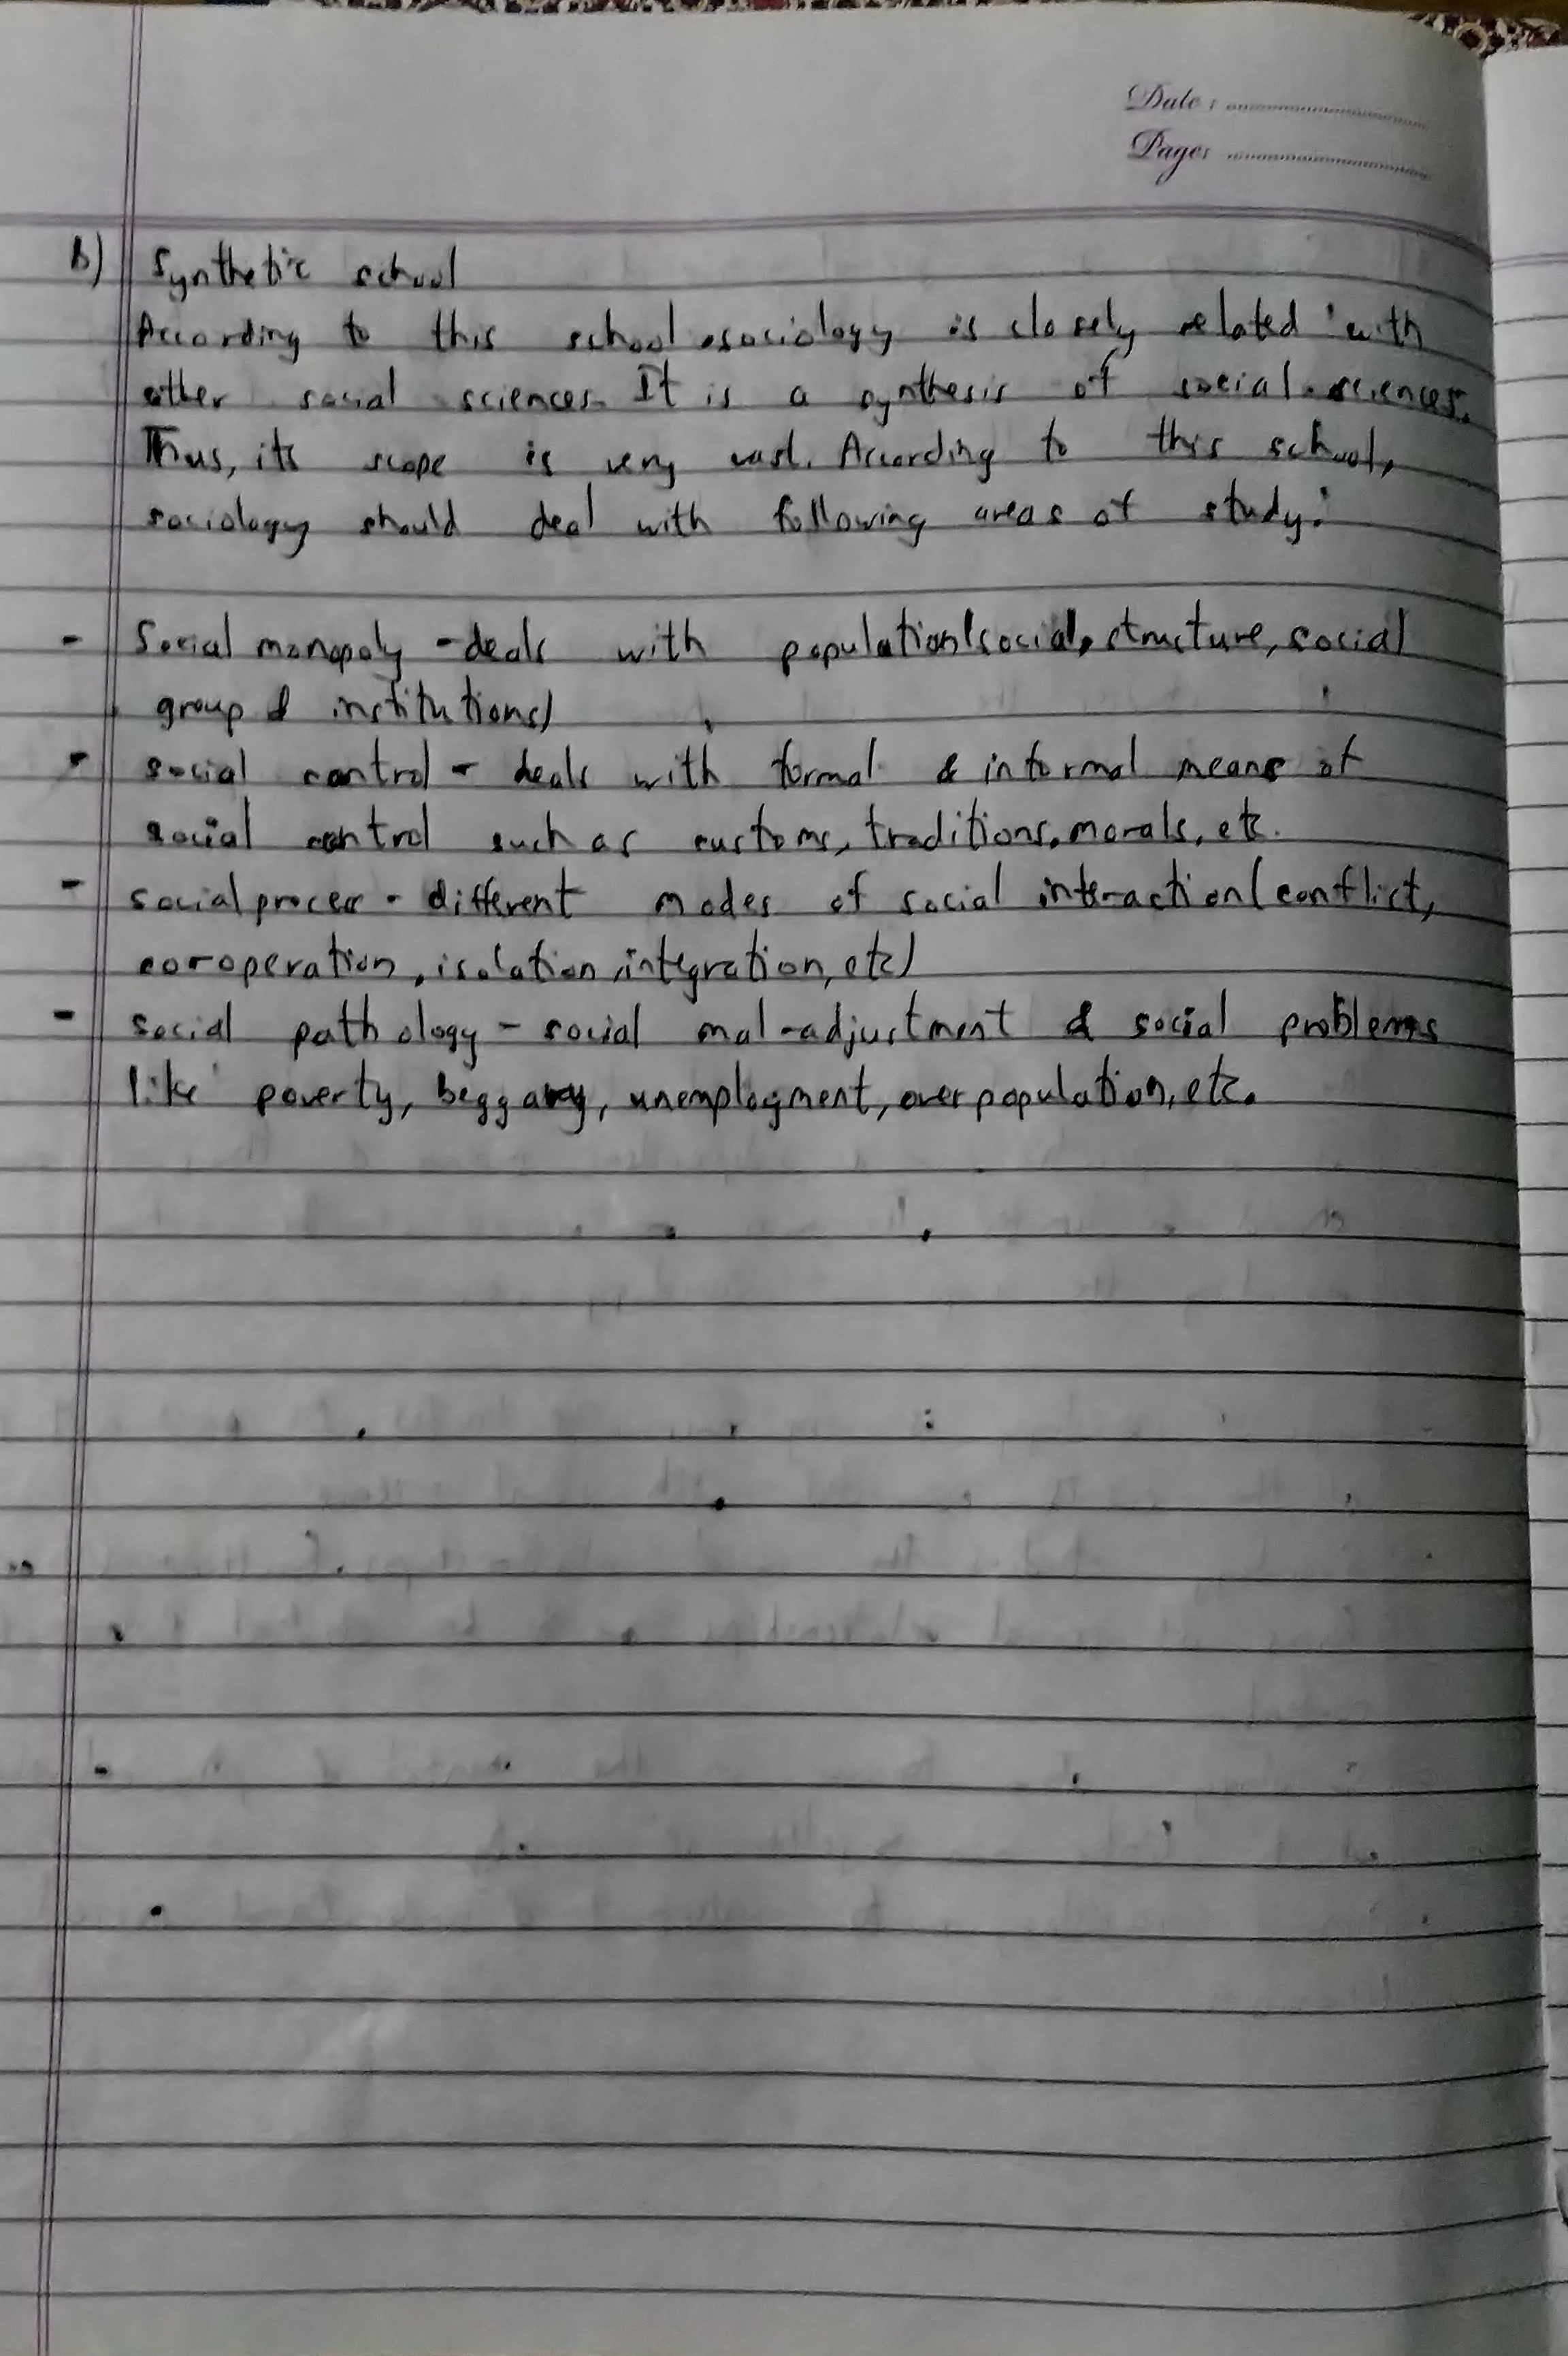 Date :
Page:
b) Synthetic school
According to this school, sociology is closely related with
other social sciences. It is a synthesis of social sciences.
Thus, its scope is very vast. According to this school,
sociology should deal with following areas of study:
- Social monopoly - deals with population(social, structure, social
group & institutions)
- social control - deals with formal & informal means of
social control such as customs, traditions, morals, etc.
- social process - different modes of social interaction (conflict,
co-operation, isolation, integration, etc)
- social pathology - social mal-adjustment & social problems
like poverty, beggary, unemployment, over population, etc.